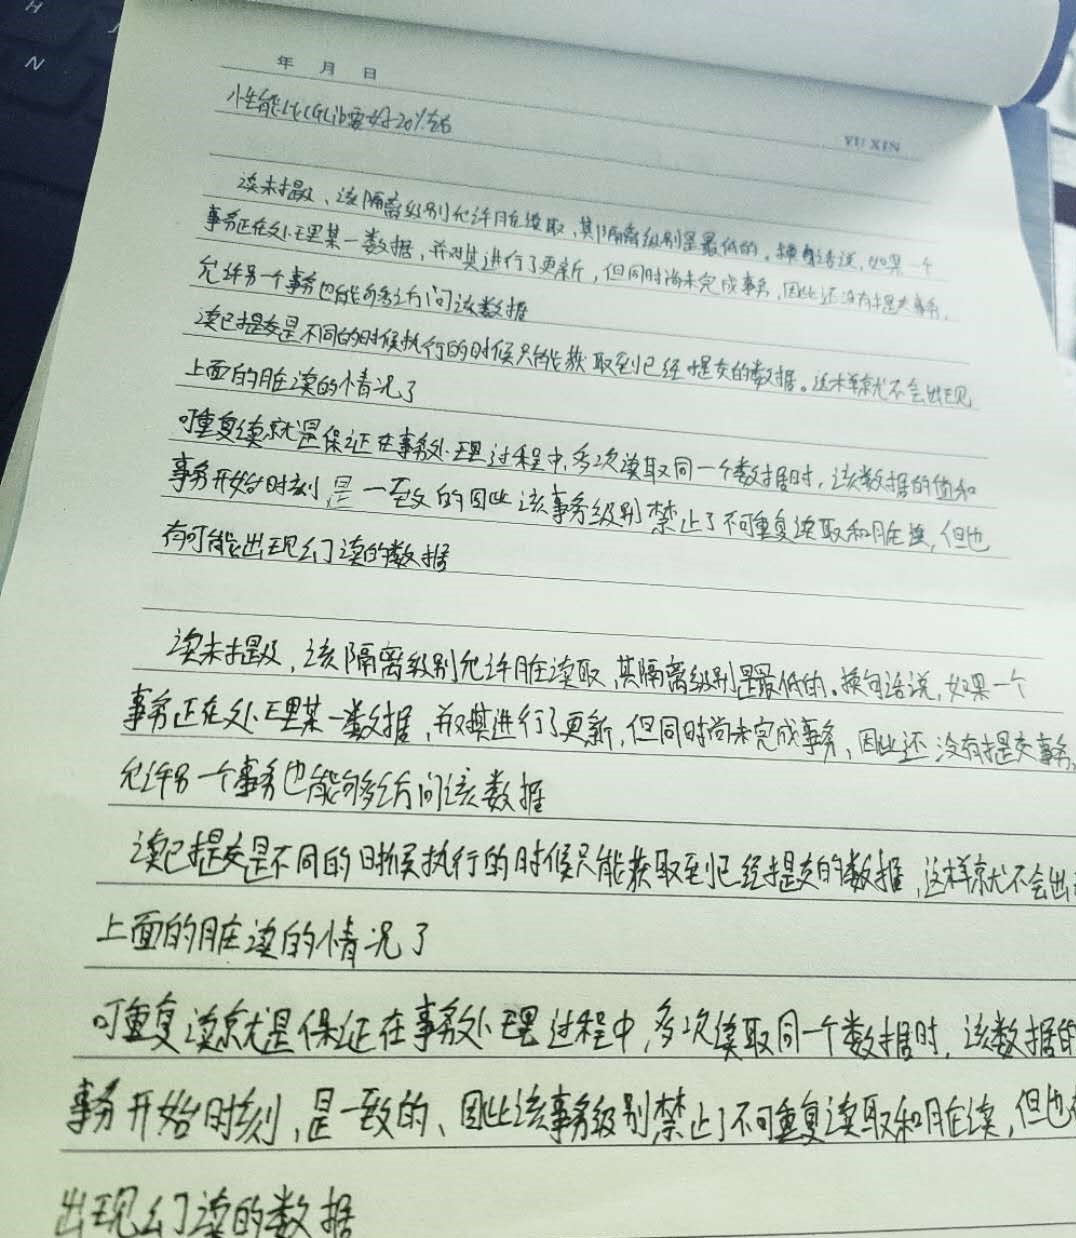 H
N
年 月 日
YU XIN
性能比CGLib要好20%左右
读未提及、该隔离级别允许脏读取,其隔离级别是最低的。换句话说,如果一个
事务正在处理某一数据,并对其进行了更新,但同时尚未完成事务,因此还没有提交事务,
允许另一个事务也能够访问该数据
读已提交是不同的时候执行的时候只能获取到已经提交的数据。这样就不会出现
上面的脏读的情况了
可重复读就是保证在事务处理过程中,多次读取同一个数据时,该数据的值和
事务开始时刻是一致的因此该事务级别禁止了不可重复读取和脏读,但也
有可能出现幻读的数据
读未提及,该隔离级别允许脏读取,其隔离级别是最低的。换句话说,如果一个
事务正在处理某一数据,并对其进行了更新,但同时尚未完成事务,因此还没有提交事务,
允许另一个事务也能够访问该数据
读已提交是不同的时候执行的时候只能获取到已经提交的数据,这样就不会出
上面的脏读的情况了
可重复读就是保证在事务处理过程中,多次读取同一个数据时,该数据的
事务开始时刻,是一致的、因此该事务级别禁止了不可重复读取和脏读,但也
出现幻读的数据